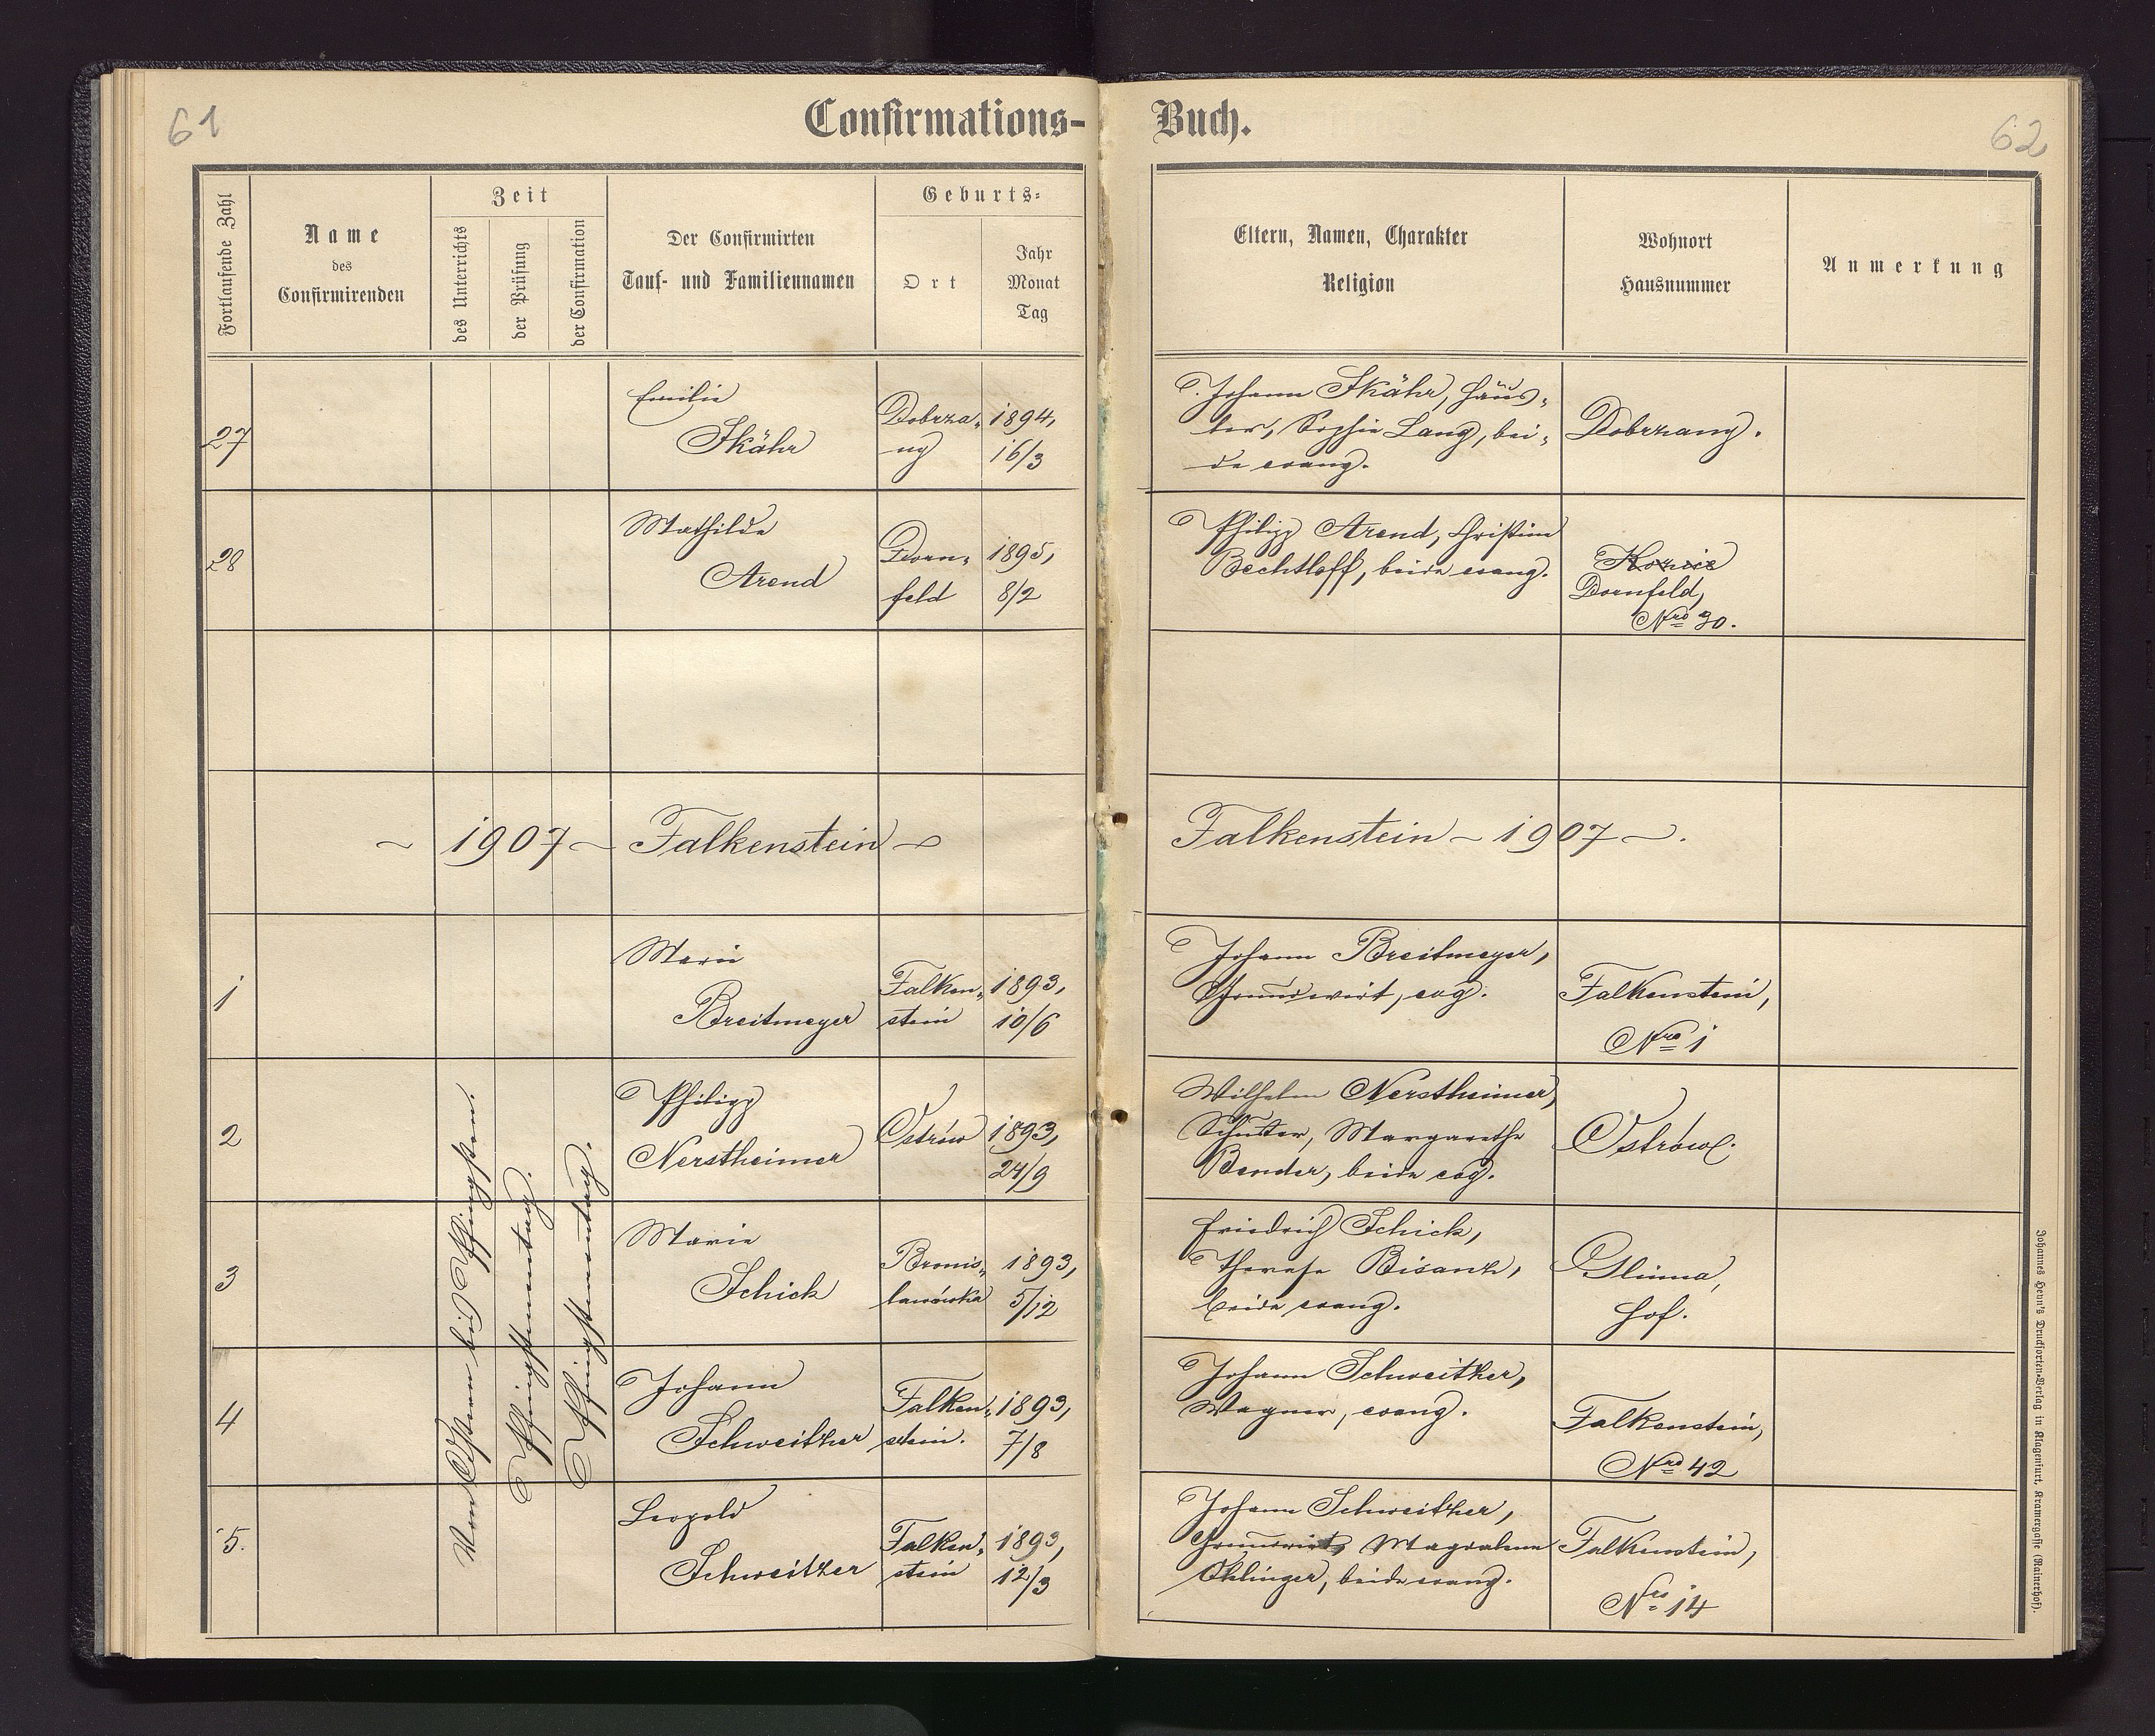 61
Confirmations-
Buch.
62
Fortlaufende Zahl
Name
des
Confirmirenden
Zeit
des Unterrichts
der Prüfung
der Confirmation
Der Confirmirten
Tauf- und Familiennamen
Geburts-
Ort
Jahr
Monat
Tag
Eltern, Namen, Charakter
Religion
Wohnort
Hausnummer
Anmerkung
27
Emilie
Skähr
Dobrza-
ny
1894,
16/3
Johann Skähr, Häus-
ler, Sophie Lang, bei-
de evang.
Dobrzany.
28
Mathilde
Arend
Dorn-
feld
1895,
8/2
Philipp Arend, Christine
Bechtloff, beide evang.
Dornfeld,
Nro 30.
~ 1907 ~ Falkenstein ~
Falkenstein ~ 1907 ~.
Von Ostern bis Pfingsten.
Pfingstsonntag.
Pfingstmontag.
1
Marie
Breitmeyer
Falken-
stein
1893,
10/6
Johann Breitmeyer,
Grundwirt, evg.
Falkenstein,
Nro 1
2
Philipp
Nerstheimer
Ostrów
1893,
24/9
Wilhelm Nerstheimer,
Schuster, Margarethe
Bender, beide evg.
Ostrów.
3
Marie
Schick
Bronis-
lawówka
1893,
5/12
Friedrich Schick,
Therese Bisanz,
beide evang.
Glinna,
Hof.
4
Johann
Schweitzer
Falken-
stein.
1893,
7/8
Johann Schweitzer,
Wagner, evang.
Falkenstein,
Nro 42
5.
Leopold
Schweitzer
Falken-
stein
1893,
12/3
Johann Schweitzer,
Grundwirt, Magdalena
Öhlinger, beide evang.
Falkenstein,
Nro 14
Johannes Heyn's Drucksorten-Verlag in Klagenfurt, Kramergasse (Rainerhof).